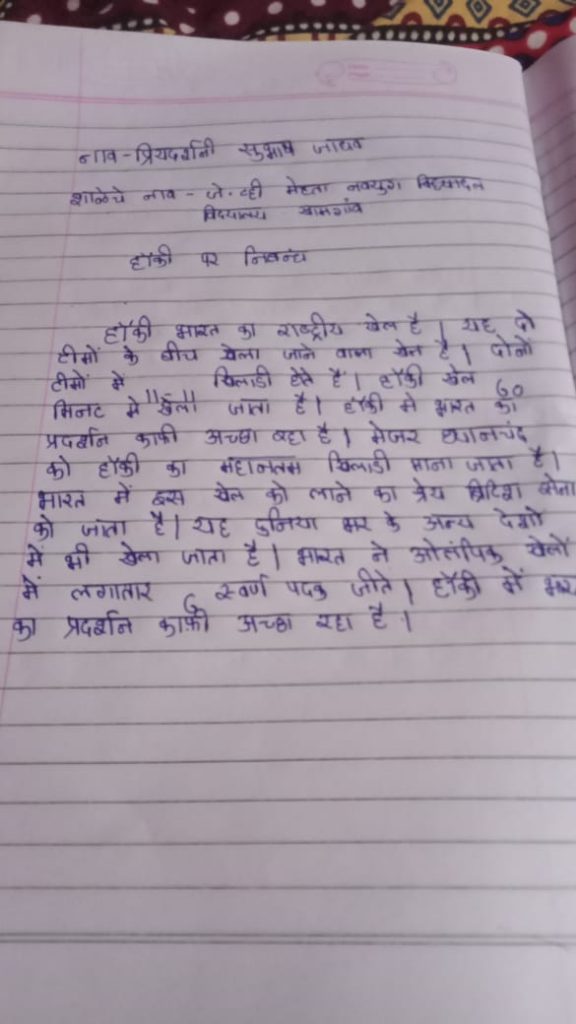 नाव - प्रियदर्शनी सुभाष जाधव
शाळेचे नाव - जे. व्ही मेहता नवयुग विद्यादान
विद्यालय खामगांव
हॉकी पर निबन्ध
हॉकी भारत का राष्ट्रीय खेल है | यह दो
टीमों के बीच खेला जाने वाला खेल है | दोनों
टीमों में 11 11 खिलाडी होते है | हॉकी खेल 60
मिनट में खेला जाता है | हॉकी में भारत का
प्रदर्शन काफी अच्छा रहा है | मेजर ध्यानचंद
को हॉकी का महानतम खिलाडी माना जाता है |
भारत में इस खेल को लाने का श्रेय ब्रिटिश सेना
को जाता है | यह दुनिया भर के अन्य देशों
में भी खेला जाता है | भारत ने ओलंपिक खेलों
में लगातार 6 स्वर्ण पदक जीते | हॉकी में भार
का प्रदर्शन काफी अच्छा रहा है |